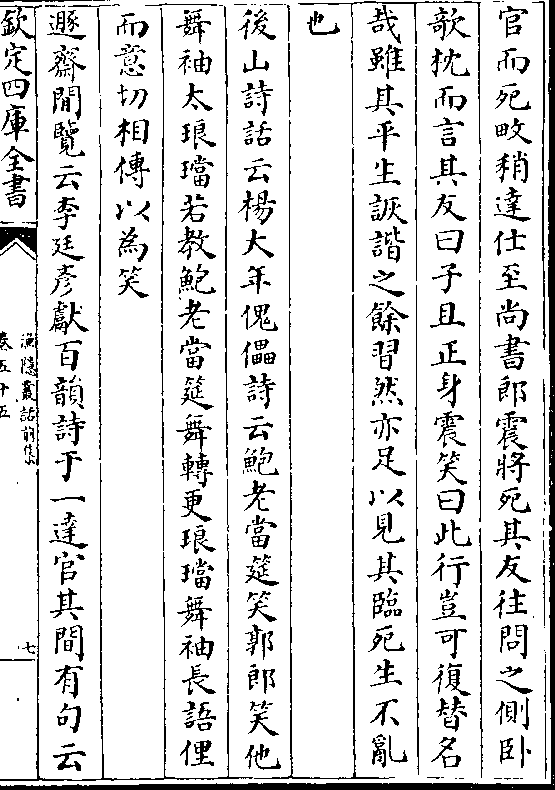 官而死畋稍達仕至尚書郎震將死其友往問之側卧
欹枕而言其友曰子且正身震笑曰此行豈可復替名
哉雖其平生詼諧之餘習然亦足以見其臨死生不亂
也
後山詩話云楊大年傀儡詩云鮑老當筵笑郭郎笑他
舞袖太琅璫若教鮑老當筵舞轉更琅璫舞袖長語俚
而意切相傳以為笑
遯齋閒覽云李廷彥獻百韻詩于一達官其間有句云
欽定四庫全書
漁隱叢話前集
卷五十五
七